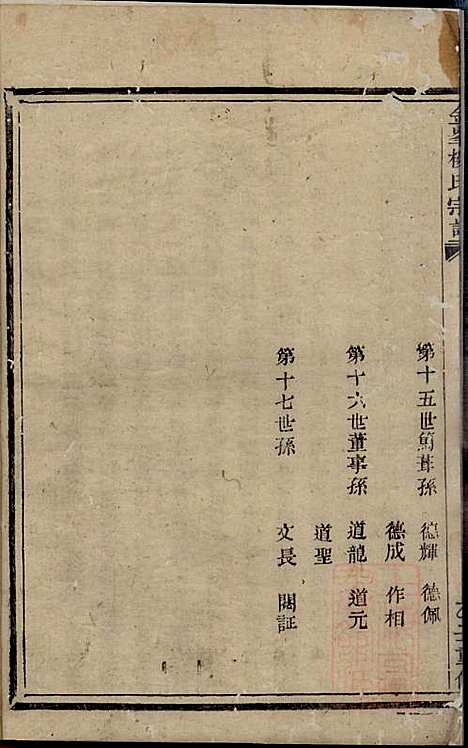 楊氏宗譜
第十五世篤葺孫 德輝 德佩
德成 作相
第十六世董事孫 道龍 道元
道聖
第十七世孫 文長 閱証